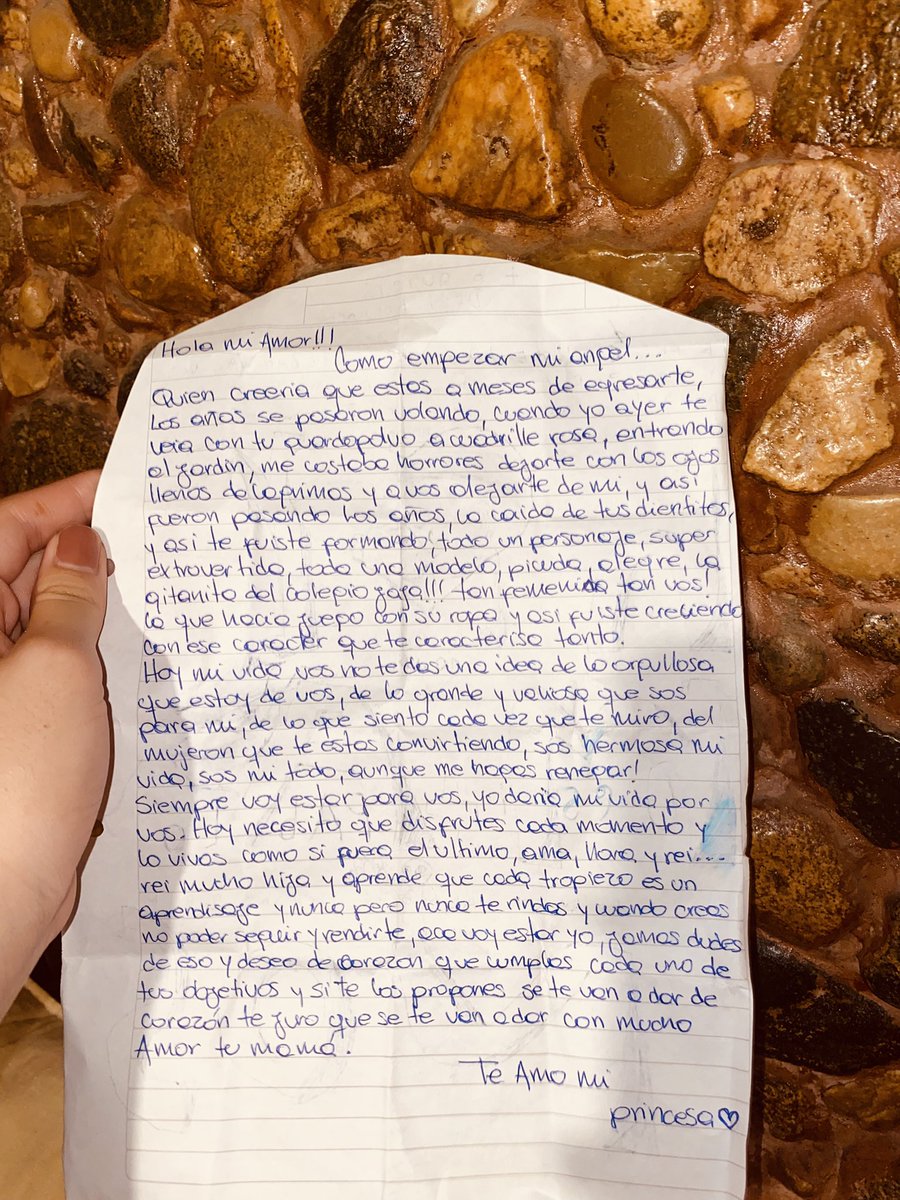 Hola mi Amor!!!
Como empezar mi angel...
Quien creeria que estas a meses de egresarte,
los años se pasaron volando, cuando yo ayer te
veia con tu guardapolvo a cuadrille rosa, entrando
al jardin, me costaba horrores dejarte con los ojos
llenos de lagrimas y a vos alejarte de mi, y asi
fueron pasando los años, la caida de tus dientitos,
y asi te fuiste formando, todo un personaje, super
extrovertida, toda una modelo, picuda, alegre, la
gitanita del colegio jaja!!! tan femenina tan vos!
la que hacia juego con su ropa y asi fuiste creciendo
con ese caracter que te caracterisa tanto.
Hoy mi vida vos no te das una idea de lo orgullosa
que estoy de vos, de lo grande y valiosa que sos
para mi, de lo que siento cada vez que te miro, del
mujeron que te estas convirtiendo, sos hermosa mi
vida, sos mi todo, aunque me hagas renegar!
Siempre voy estar para vos, yo daria mi vida por
vos. Hoy necesito que disfrutes cada momento y
lo vivas como si fuera el ultimo, ama, llora y rei...
rei mucho hija y aprende que cada tropiezo es un
aprendisaje y nunca pero nunca te rindas y cuando creas
no poder seguir y rendirte, aca voy estar yo, jamas dudes
de eso y deseo de corazon que cumplas cada uno de
tus objetivos y si te los propones se te van a dar de
corazón te juro que se te van a dar con mucho
Amor tu mamá.
Te Amo mi
princesa♡